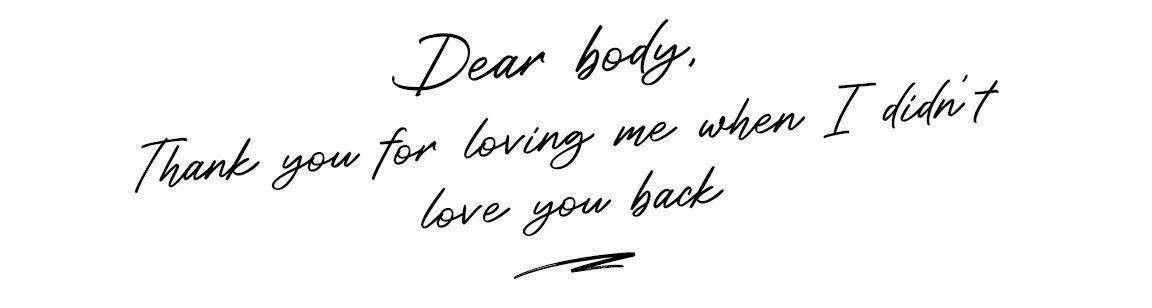 Dear body,
Thank you for loving me when I didn't
love you back